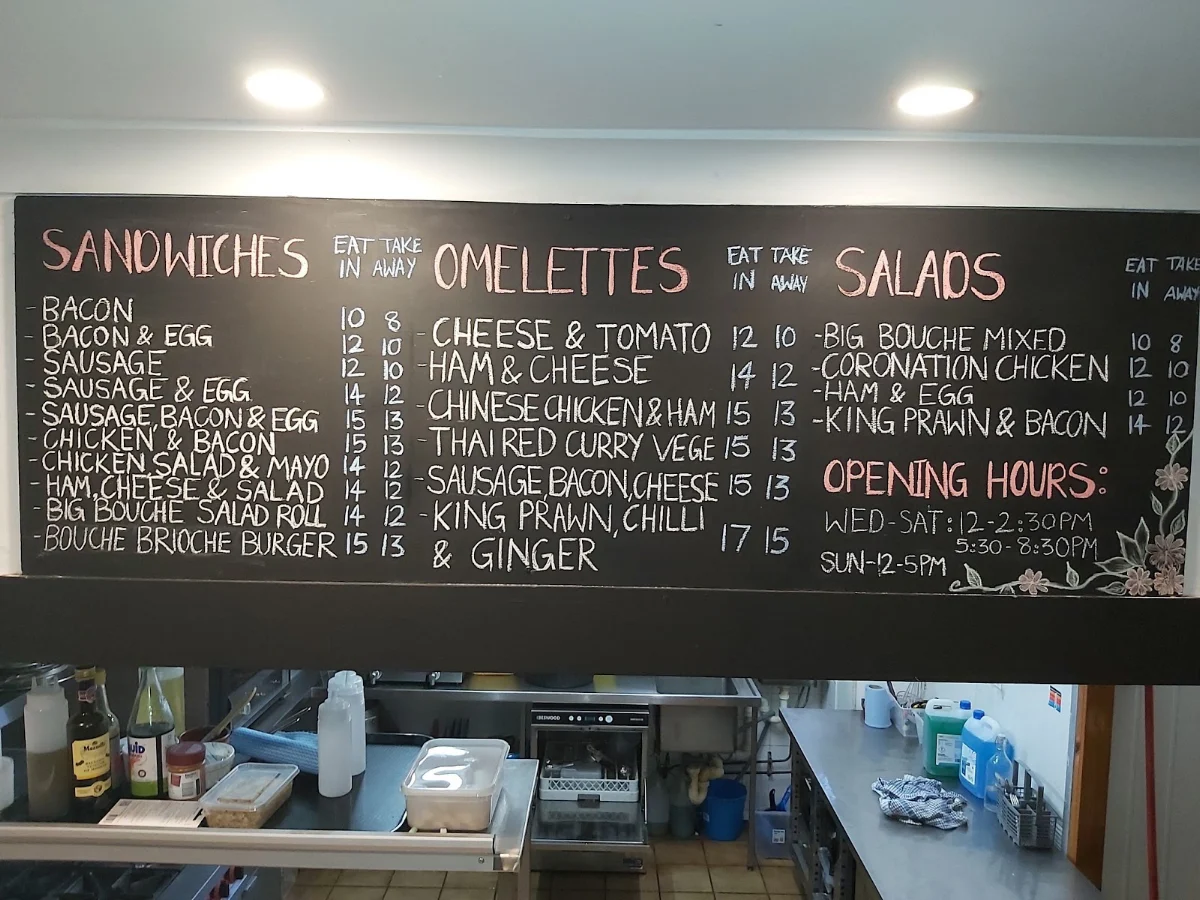 SANDWICHES EAT IN TAKE AWAY
- BACON 10 8
- BACON & EGG 12 10
- SAUSAGE 12 10
- SAUSAGE & EGG 14 12
- SAUSAGE, BACON & EGG 15 13
- CHICKEN & BACON 15 13
- CHICKEN, SALAD & MAYO 14 12
- HAM, CHEESE & SALAD 14 12
- BIG BOUCHE SALAD ROLL 14 12
- BOUCHE BRIOCHE BURGER 15 13
OMELETTES EAT IN TAKE AWAY
- CHEESE & TOMATO 12 10
- HAM & CHEESE 14 12
- CHINESE CHICKEN & HAM 15 13
- THAI RED CURRY VEGE 15 13
- SAUSAGE, BACON, CHEESE 15 13
- KING PRAWN, CHILLI
& GINGER 17 15
SALADS EAT IN TAKE AWAY
- BIG BOUCHE MIXED 10 8
- CORONATION CHICKEN 12 10
- HAM & EGG 12 10
- KING PRAWN & BACON 14 12
OPENING HOURS:
WED-SAT: 12-2:30PM
5:30-8:30PM
SUN-12-5PM